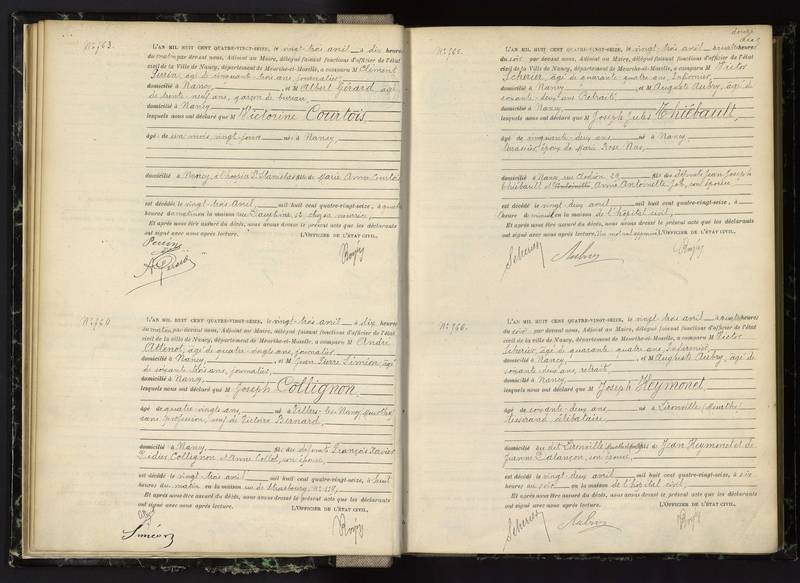 N° 763.
L'AN MIL HUIT CENT QUATRE-VINGT-SEIZE, le vingt-trois avril à dix heures
du matin par devant nous, Adjoint au Maire, délégué faisant fonctions d'officier de l'état
civil de la Ville de Nancy, département de Meurthe-et-Moselle, a comparu M Clément
Perrin, âgé de cinquante-trois ans, journalier,
domicilié à Nancy, et M Albert Gérard, âgé
de trente-neuf ans, garçon de bureau,
domicilié à Nancy,
lesquels nous ont déclaré que M Victorine Courtois,
âgé de un mois, vingt jours né à Nancy,
domicilié à Nancy, Marie Anne Courtois
est décédé le vingt-trois avril, mil huit cent quatre-vingt-seize, à quatre
heures du matin en la maison rue
Et après nous être assuré du décès, nous avons dressé le présent acte que les déclarants
ont signé avec nous après lecture. L'OFFICIER DE L'ÉTAT CIVIL,
Perrin
A. Gérard
N° 764
L'AN MIL HUIT CENT QUATRE-VINGT-SEIZE, le vingt-trois avril à dix heures
du matin, par devant nous, Adjoint au Maire, délégué faisant fonctions d'officier de l'état
civil de la ville de Nancy, département de Meurthe-et-Moselle, a comparu M André
âgé de quatre-vingts ans, journalier
domicilié à Nancy, et M Jean Pierre Siméon, âgé
de soixante-trois ans, journalier,
domicilié à Nancy,
lesquels nous ont déclaré que M Joseph Collignon,
âgé de quatre vingts ans, né à Villers-les-Nancy (Meurthe)
sans profession, veuf de Victoire Bernard,
domicilié à Nancy, fils des défunts François Xavier
Collignon et Anne Collot, son épouse,
est décédé le vingt-trois avril mil huit cent quatre-vingt-seize, à huit
heures du matin en la maison rue de Strasbourg, N° 129,
Et après nous être assuré du décès, nous avons dressé le présent acte que les déclarants
ont signé avec nous après lecture. L'OFFICIER DE L'ÉTAT CIVIL,
Siméon
N° 765.
L'AN MIL HUIT CENT QUATRE-VINGT-SEIZE, le vingt-trois avril à quatre heures
du soir par devant nous, Adjoint au Maire, délégué faisant fonctions d'officier de l'état
civil de la Ville de Nancy, département de Meurthe-et-Moselle, a comparu M Victor
Scherier, âgé de quarante quatre ans, Infirmier,
domicilié à Nancy et M Auguste Aubry, âgé de
soixante-deux ans Retraité,
domicilié à Nancy,
lesquels nous ont déclaré que M Joseph Jules Thiébault,
âgé de cinquante-deux ans né à Nancy
époux de Marie Rose
domicilié à Nancy, rue Clodion 29, fils des défunts Jean Joseph
Thiébault et Anne Antoinette Job, son épouse
est décédé le vingt-deux avril, mil huit cent quatre-vingt-seize, à
heure de en la maison de l'hôpital civil,
Et après nous être assuré du décès, nous avons dressé le présent acte que les déclarants
ont signé avec nous après lecture, L'OFFICIER DE L'ÉTAT CIVIL,
Scherier Aubry
N° 766.
L'AN MIL HUIT CENT QUATRE-VINGT-SEIZE, le vingt-trois avril à quatre heures
du soir par devant nous, Adjoint au Maire, délégué faisant fonctions d'officier de l'état
civil de la ville de Nancy, département de Meurthe-et-Moselle, a comparu M Victor
Scherier, âgé de quarante quatre ans, Infirmier,
domicilié à Nancy, et M Auguste Aubry, âgé de
soixante deux ans, retraité,
domicilié à Nancy,
lesquels nous ont déclaré que M Joseph Heymonet,
âgé de soixante-deux ans, né à Lironville (Meurthe)
tisserand célibataire,
domicilié au dit Lironville fils de Jean Heymonet et de
Jeanne Balançon, son épouse,
est décédé le vingt-deux avril mil huit cent quatre-vingt-seize, à six
heures du soir en la maison de l'hôpital civil,
Et après nous être assuré du décès, nous avons dressé le présent acte que les déclarants
ont signé avec nous après lecture. L'OFFICIER DE L'ÉTAT CIVIL,
Scherier Aubry